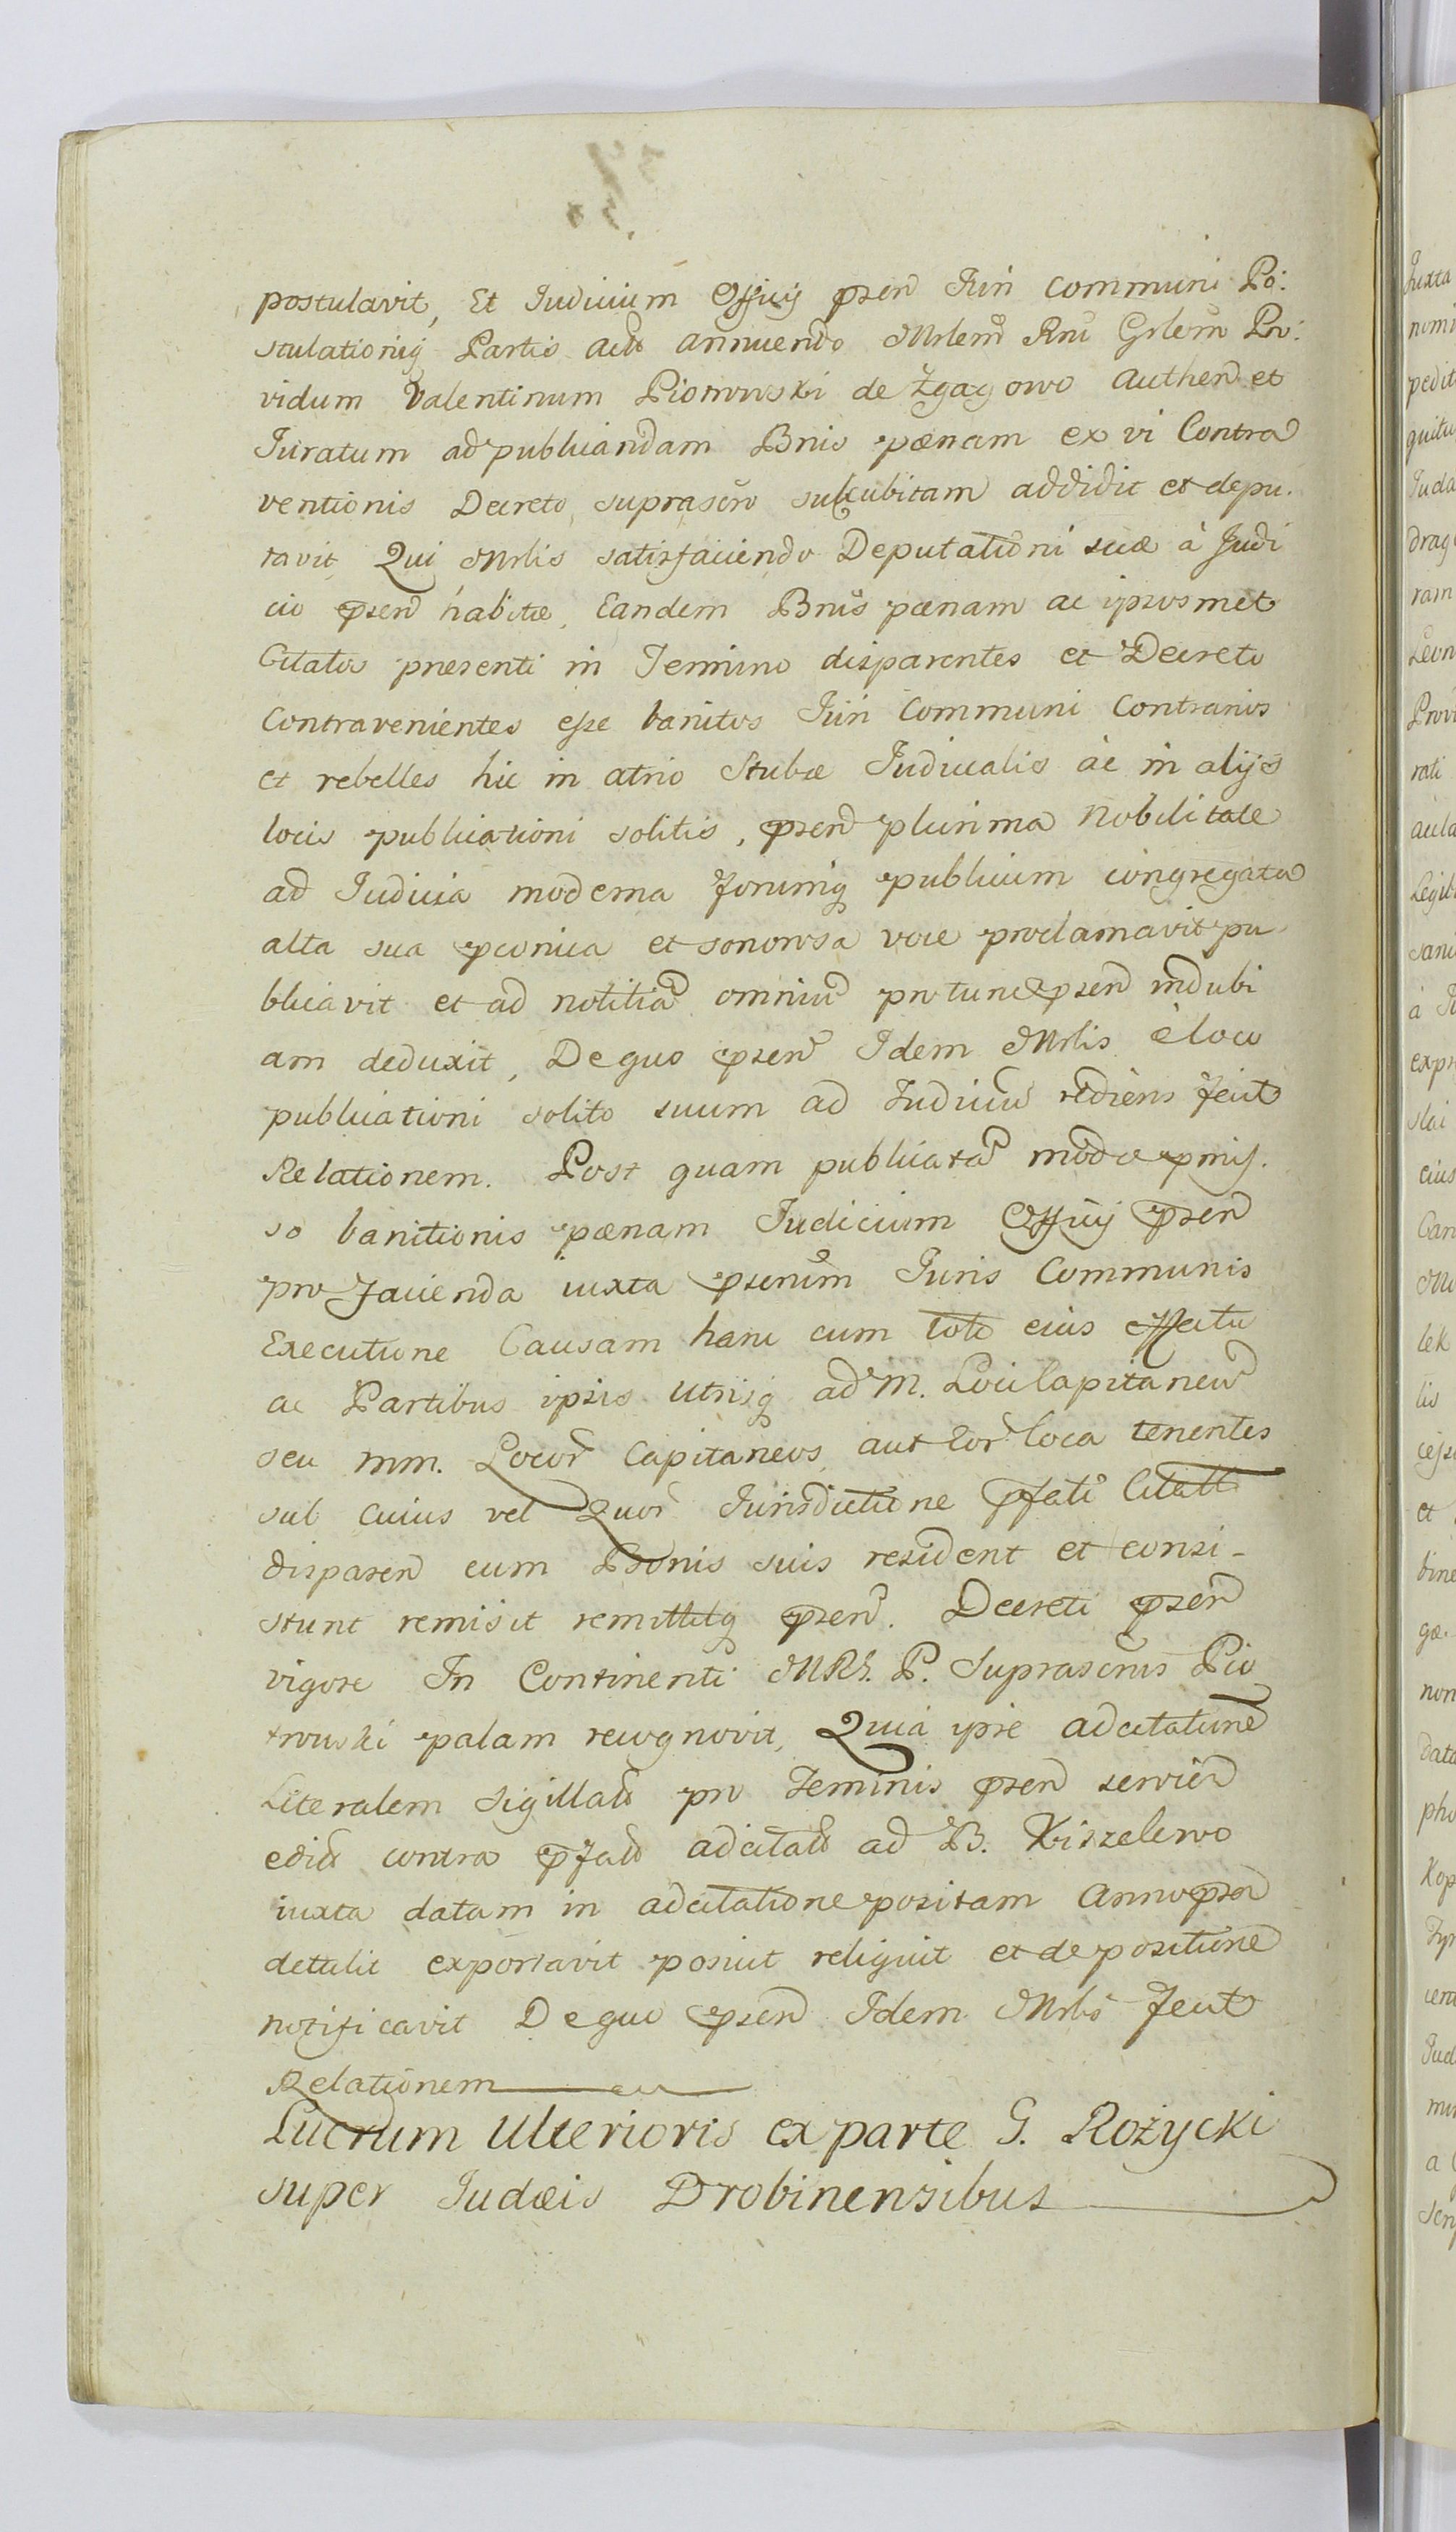 postulavit, Et Judicium Officij pñsen Juri communi Po:
stulationiq Partis Acte annuendo Mrlem Rni Grlem Pro:
vidum Valentinum Piotrowski de Zgagowo Authen et
Juratum ad publicandam Bnis pœnam ex vi Contra
ventionis Decreto suprascro succubitam addidit et depu.
tavit, Qui Mrlis satisfaciendo Deputationi suæ à Judi
cio pñsen habitæ, Eandem Bnis pœnam ac ipsosmet
Citatos præsenti in Termino disparentes et Decreto
Contravenientes esse banitos Juri Communi Contrarios
et rebelles hic in atrio Stubæ Judicialis ac in alijs
locis publicationi solitis, pñsen plurima Nobilitate
ad Judicia moderna forumq publicum congregata
alta sua pconica et sonorosa voce proclamavit pu
blicavit et ad notitia omniu protunc pñsen indubi
am deduxit, De quo pñsen Idem Mrlis è loco
publicationi solito suum ad Judiciu rediens fecit
Relationem. Post quam publicata modo pmis.
so banitionis pœnam Judicium Officij pñsen
pro facienda iuxta pscrium Juris Communis
Executione Causam hanc cum toto eius effectu
ac Partibus ipsis utrisq ad M. Loci Capitaneu
seu mm. Locor Capitaneos aut eor loca tenentes
sub cuius vel Quor Jurisdictione pfati Citati
disparen cum Bonis suis resident et consi-
stunt remisit remittitq pñsen. Decreti pñsen
vigore In Continenti MRG. P. Suprascrus Pio
trowski palam recognovit, Quia ipse adcitatione
Literalem Sigillat pro Terminis pñsen servien
edit contra pfat adcitat ad B. Kiszelewo
iuxta datam in adcitatione positam Anno pñsen
detulit exportavit posuit reliquit et de positione
notificavit De quo pñsen Idem Mrlis fecit
Relationem
Lucrum Ulterioris ex parte G. Rożycki
super Judæis Drobinensibus